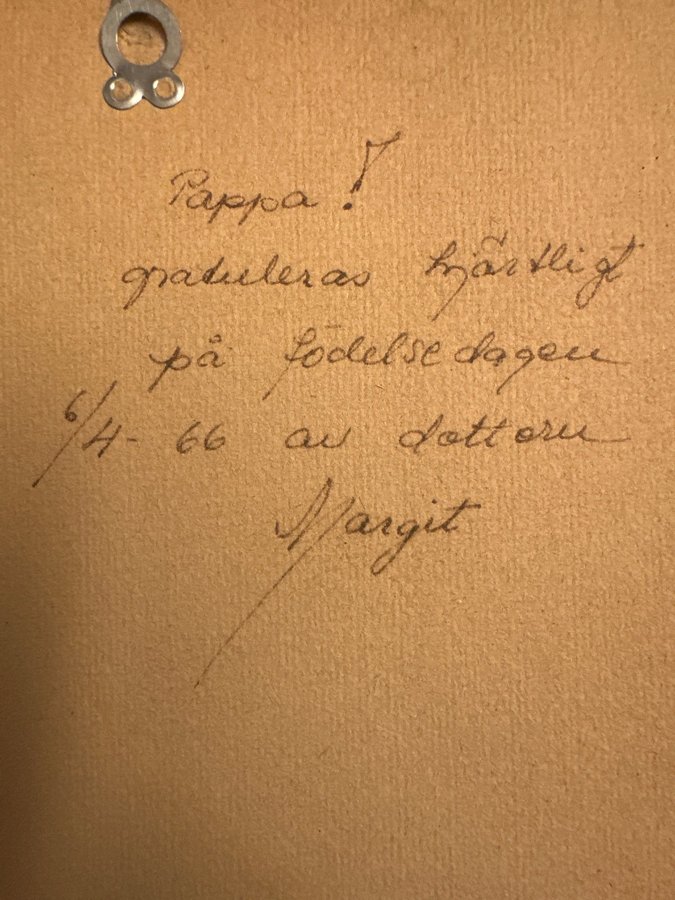 Pappa!
gratuleras hjärtligt
på födelsedagen
6/4-66 av dottern
Margit